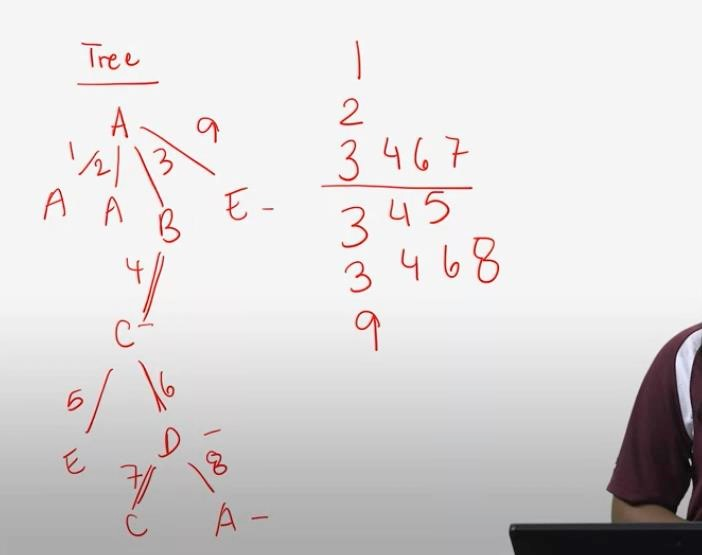 Tree
A
1 2 3 9
A A B E -
4
C -
5 6
E D -
7 8
C A -
1
2
3 4 6 7
3 4 5
3 4 6 8
9